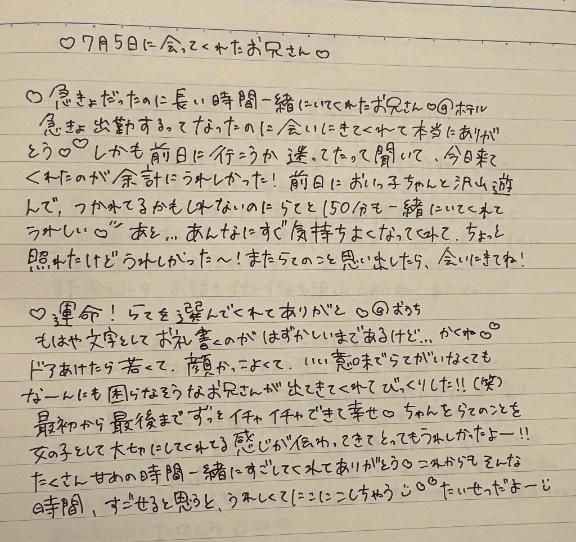 ♡7月5日に会ってくれたお兄さん♡
♡急きょだったのに長い時間一緒にいてくれたお兄さん♡@ホテル
急きょ出勤するってなったのに会いにきてくれて本当にありが
とう♡♡しかも前日に行こうか迷ってたって聞いて、今日来て
くれたのが余計にうれしかった!前日においっ子ちゃんと沢山遊
んで、つかれてるかもしれないのにらてと150分も一緒にいてくれて
うれしい♡あと...あんなにすぐ気持ちよくなってくれて、ちょっと
照れたけどうれしかった〜!またらてのこと思い出したら、会いにきてね!
♡運命!らてを選んでくれてありがと♡@おうち
もはや文字としてお礼書くのがはずかしいまであるけど...かくね♡♡
ドアあけたら若くて、顔かっこよくて、いい意味でらてがいなくても
なーんにも困らなそうなお兄さんが出てきてくれてびっくりした!!(笑)
最初から最後までずっとイチャイチャできて幸せ♡ちゃんとらてのことを
女の子として大切にしてくれてる感じが伝わってきてとってもうれしかったよー!!
たくさんせめの時間一緒にすごしてくれてありがとう♡これからもそんな
時間、すごせると思うと、うれしくてにこにこしちゃう♡♡たいせつだよー